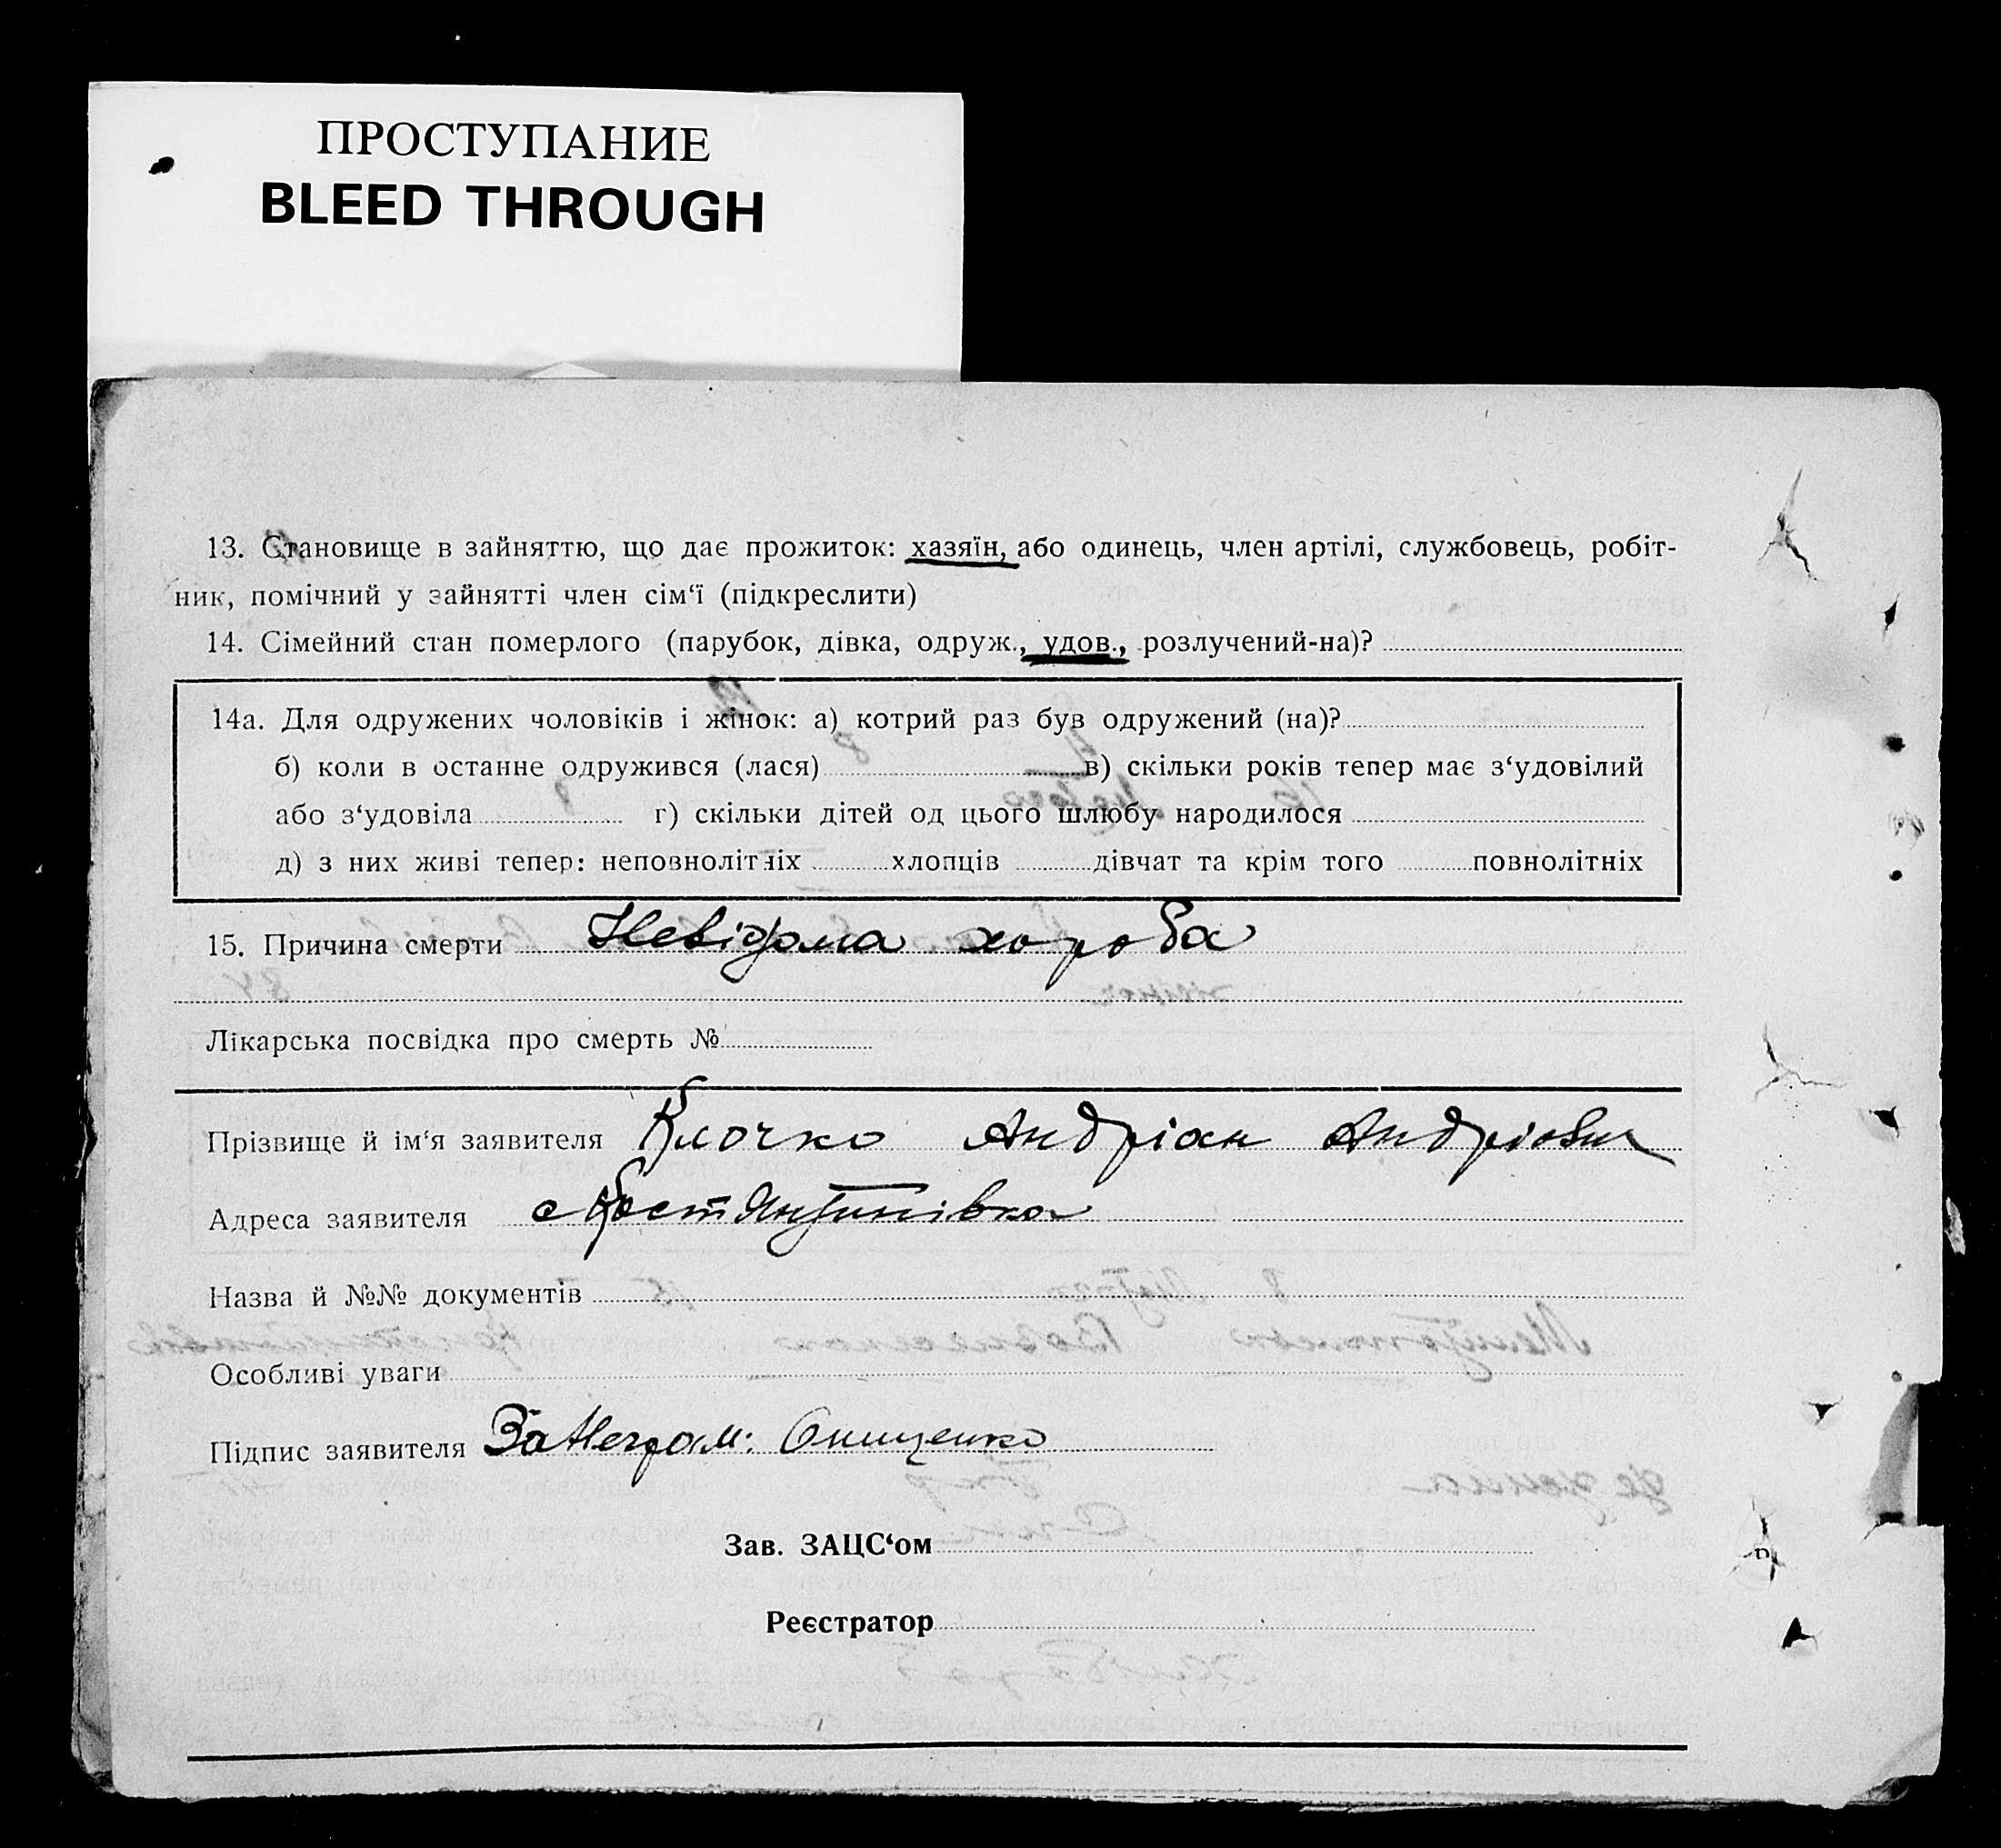 ПРОСТУПАНИЕ
BLEED THROUGH
13. Становище в зайняттю, що дає прожиток: хазяїн, або одинець, член артілі, службовець, робіт-
ник, помічний у зайнятті член сім‘ї (підкреслити)
14. Сімейний стан померлого (парубок, дівка, одруж., удов., розлучений-на)?
14а. Для одружених чоловіків і жінок: а) котрий раз був одружений (на)?
б) коли в останне одружився (лася) в) скільки років тепер має з‘удовілий
або з‘удовіла г) скільки дітей од цього шлюбу народилося
д) з них живі тепер: неповнолітніх хлопців дівчат та крім того повнолітніх
15. Причина смерти Невідома хороба
Лікарська посвідка про смерть №
Прізвище й ім‘я заявителя Клочко Андріан Андрієвич
Адреса заявителя с Костянтинівка
Назва й №№ документів
Особливі уваги
Підпис заявителя За Неграм: Онищенко
Зав. ЗАЦС‘ом
Реєстратор